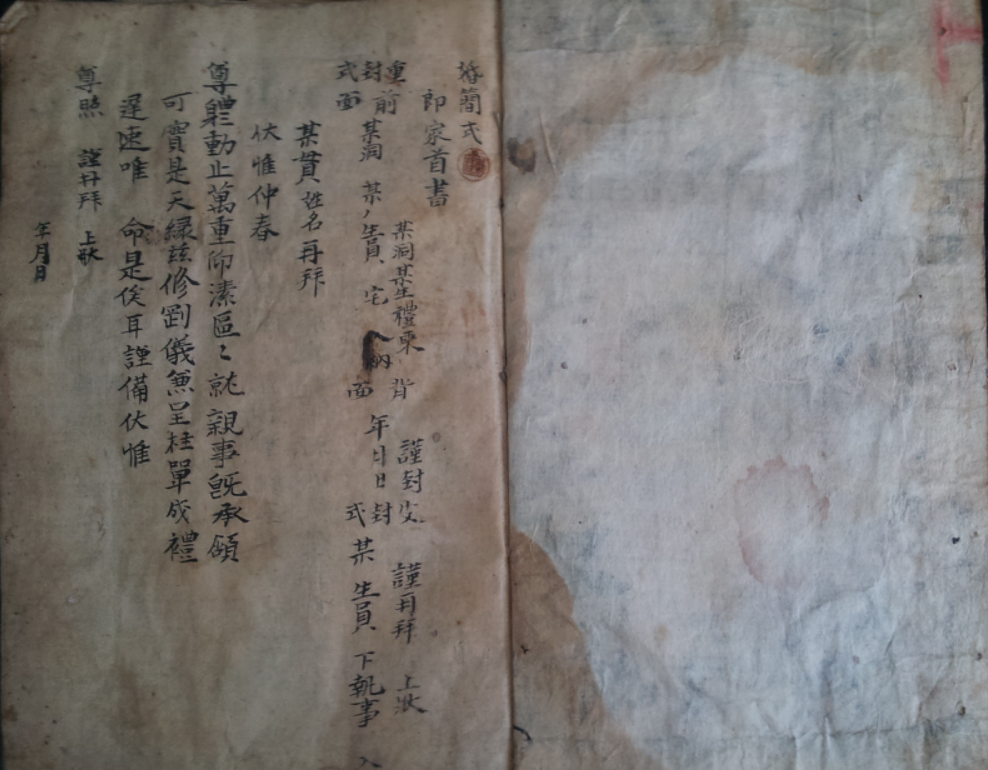 婚簡式
即家首書
重封式 前面 某洞 某生員 宅 入納
某洞某生禮東 背面 年月日 謹封
皮封式 某生員 下執事 入
謹再拜 上狀
某貫姓名再拜
伏惟仲春
尊軆動止萬重仰溸區〻就親事旣承頷
可實是天緣玆修剳儀兼呈柱單成禮
遲速唯 命是俟耳謹備伏惟
尊照 謹再拜 上狀
年月日